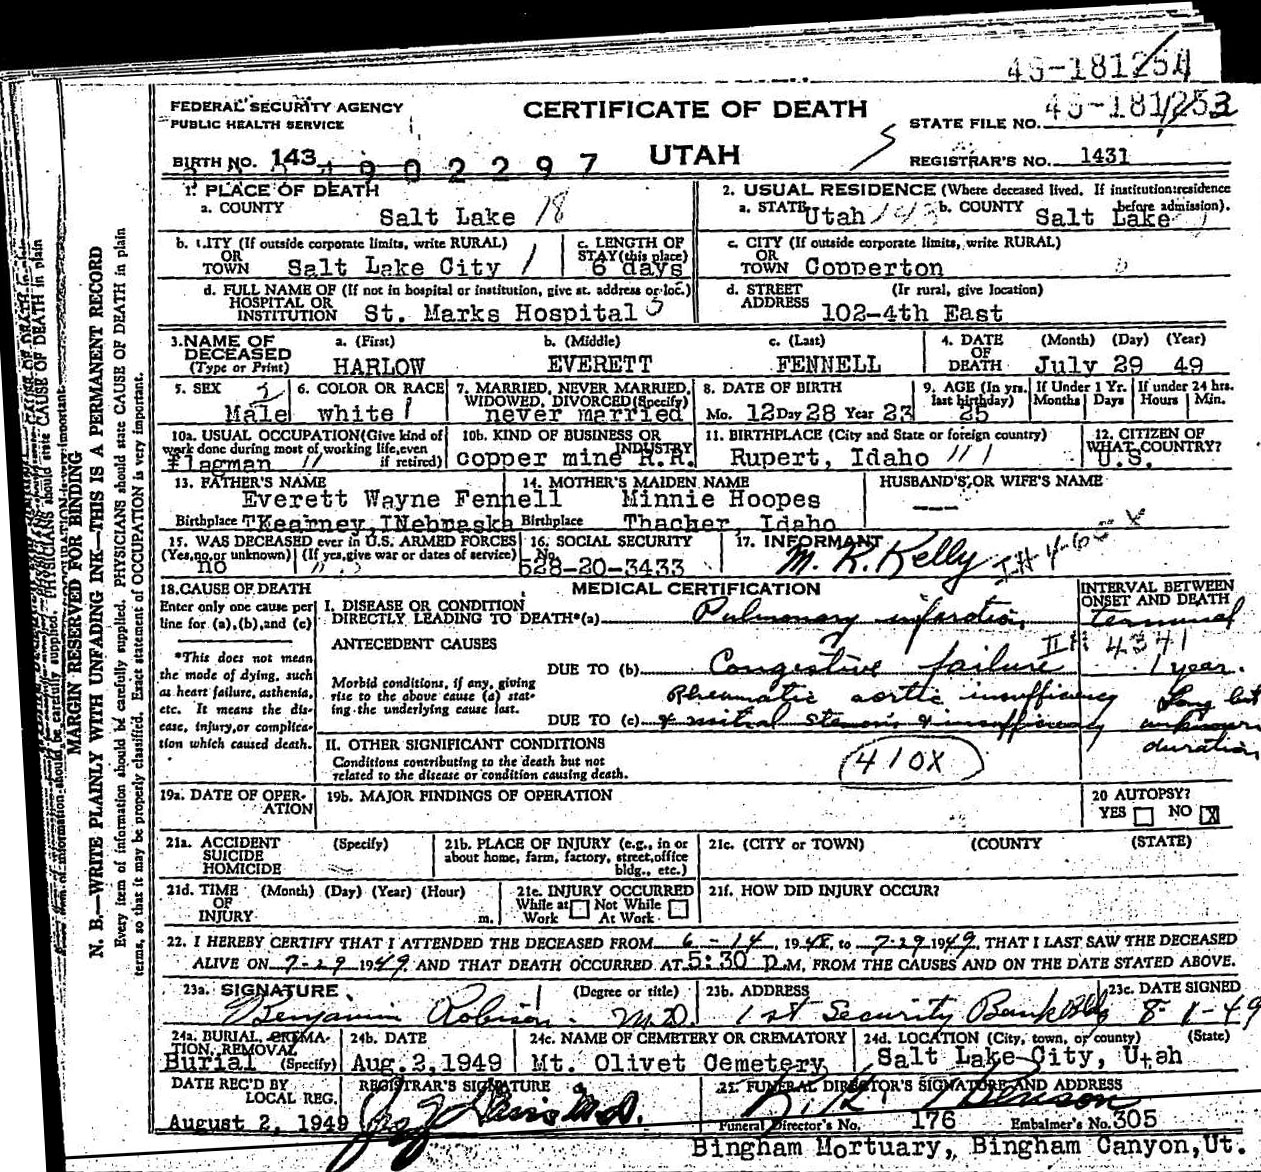 49-181251
49-181253
FEDERAL SECURITY AGENCY
PUBLIC HEALTH SERVICE
CERTIFICATE OF DEATH
UTAH
STATE FILE NO.
BIRTH NO. 143
4902297
REGISTRAR'S NO. 1431
1. PLACE OF DEATH
a. COUNTY Salt Lake 18
2. USUAL RESIDENCE (Where deceased lived. If institution: residence before admission).
a. STATE Utah b. COUNTY Salt Lake
b. CITY (If outside corporate limits, write RURAL) OR TOWN Salt Lake City 1
c. LENGTH OF STAY (this place) 6 days
c. CITY (If outside corporate limits, write RURAL) OR TOWN Copperton
d. FULL NAME OF (If not in hospital or institution, give st. address or loc.) HOSPITAL OR INSTITUTION St. Marks Hospital
d. STREET ADDRESS (If rural, give location) 102-4th East
3. NAME OF DECEASED (Type or Print)
a. (First) HARLOW
b. (Middle) EVERETT
c. (Last) FENNELL
4. DATE OF DEATH (Month) (Day) (Year) July 29 49
5. SEX Male
6. COLOR OR RACE white 1
7. MARRIED, NEVER MARRIED, WIDOWED, DIVORCED (Specify) never married
8. DATE OF BIRTH Mo. 12 Day 28 Year 23
9. AGE (In yrs. last birthday) 25
If Under 1 Yr. Months Days
If under 24 hrs. Hours Min.
10a. USUAL OCCUPATION (Give kind of work done during most of working life, even if retired) flagman 11
10b. KIND OF BUSINESS OR INDUSTRY copper mine R.R.
11. BIRTHPLACE (City and State or foreign country) Rupert, Idaho
12. CITIZEN OF WHAT COUNTRY? U.S.
13. FATHER'S NAME Everett Wayne Fennell
Birthplace Kearney, Nebraska
14. MOTHER'S MAIDEN NAME Minnie Hoopes
Birthplace Thacher, Idaho
HUSBAND'S OR WIFE'S NAME
15. WAS DECEASED ever in U.S. ARMED FORCES (Yes, no, or unknown) (If yes, give war or dates of service) no
16. SOCIAL SECURITY No. 528-20-3433
17. INFORMANT M. R. Kelly
18. CAUSE OF DEATH
Enter only one cause per line for (a), (b), and (c)
*This does not mean the mode of dying, such as heart failure, asthenia, etc. It means the disease, injury, or complication which caused death.
MEDICAL CERTIFICATION
INTERVAL BETWEEN ONSET AND DEATH
I. DISEASE OR CONDITION DIRECTLY LEADING TO DEATH*(a) Pulmonary infarction terminal
ANTECEDENT CAUSES
4341
DUE TO (b) Congestive failure 1 year.
Morbid conditions, if any, giving rise to the above cause (a) stating the underlying cause last.
Rheumatic aortic insufficiency
DUE TO (c) & mitral stenosis & insufficiency
Long but unknown duration
II. OTHER SIGNIFICANT CONDITIONS
Conditions contributing to the death but not related to the disease or condition causing death.
410X
19a. DATE OF OPERATION
19b. MAJOR FINDINGS OF OPERATION
20 AUTOPSY? YES NO X
21a. ACCIDENT SUICIDE HOMICIDE (Specify)
21b. PLACE OF INJURY (e.g., in or about home, farm, factory, street, office bldg., etc.)
21c. (CITY or TOWN) (COUNTY) (STATE)
21d. TIME OF INJURY (Month) (Day) (Year) (Hour) m.
21e. INJURY OCCURRED While at Work Not While At Work
21f. HOW DID INJURY OCCUR?
22. I HEREBY CERTIFY THAT I ATTENDED THE DECEASED FROM 6-14, 1948, to 7-29 1949, THAT I LAST SAW THE DECEASED
ALIVE ON 7-29 1949 AND THAT DEATH OCCURRED AT 5:30 p.M, FROM THE CAUSES AND ON THE DATE STATED ABOVE.
23a. SIGNATURE (Degree or title) Benjamin Robison. M.D.
23b. ADDRESS 1st Security Bank Bldg
23c. DATE SIGNED 8-1-49
24a. BURIAL, CREMATION, REMOVAL (Specify) Burial
24b. DATE Aug. 2, 1949
24c. NAME OF CEMETERY OR CREMATORY Mt. Olivet Cemetery
24d. LOCATION (City, town, or county) (State) Salt Lake City, Utah
DATE REC'D BY LOCAL REG. August 2, 1949
REGISTRAR'S SIGNATURE
25. FUNERAL DIRECTOR'S SIGNATURE AND ADDRESS
Funeral Director's No. 176 Embalmer's No. 305
Bingham Mortuary, Bingham Canyon, Ut.
MARGIN RESERVED FOR BINDING
N. B.—WRITE PLAINLY WITH UNFADING INK—THIS IS A PERMANENT RECORD
Every item of information should be carefully supplied. PHYSICIANS should state CAUSE OF DEATH in plain
terms, so that it may be properly classified. Exact statement of OCCUPATION is very important.